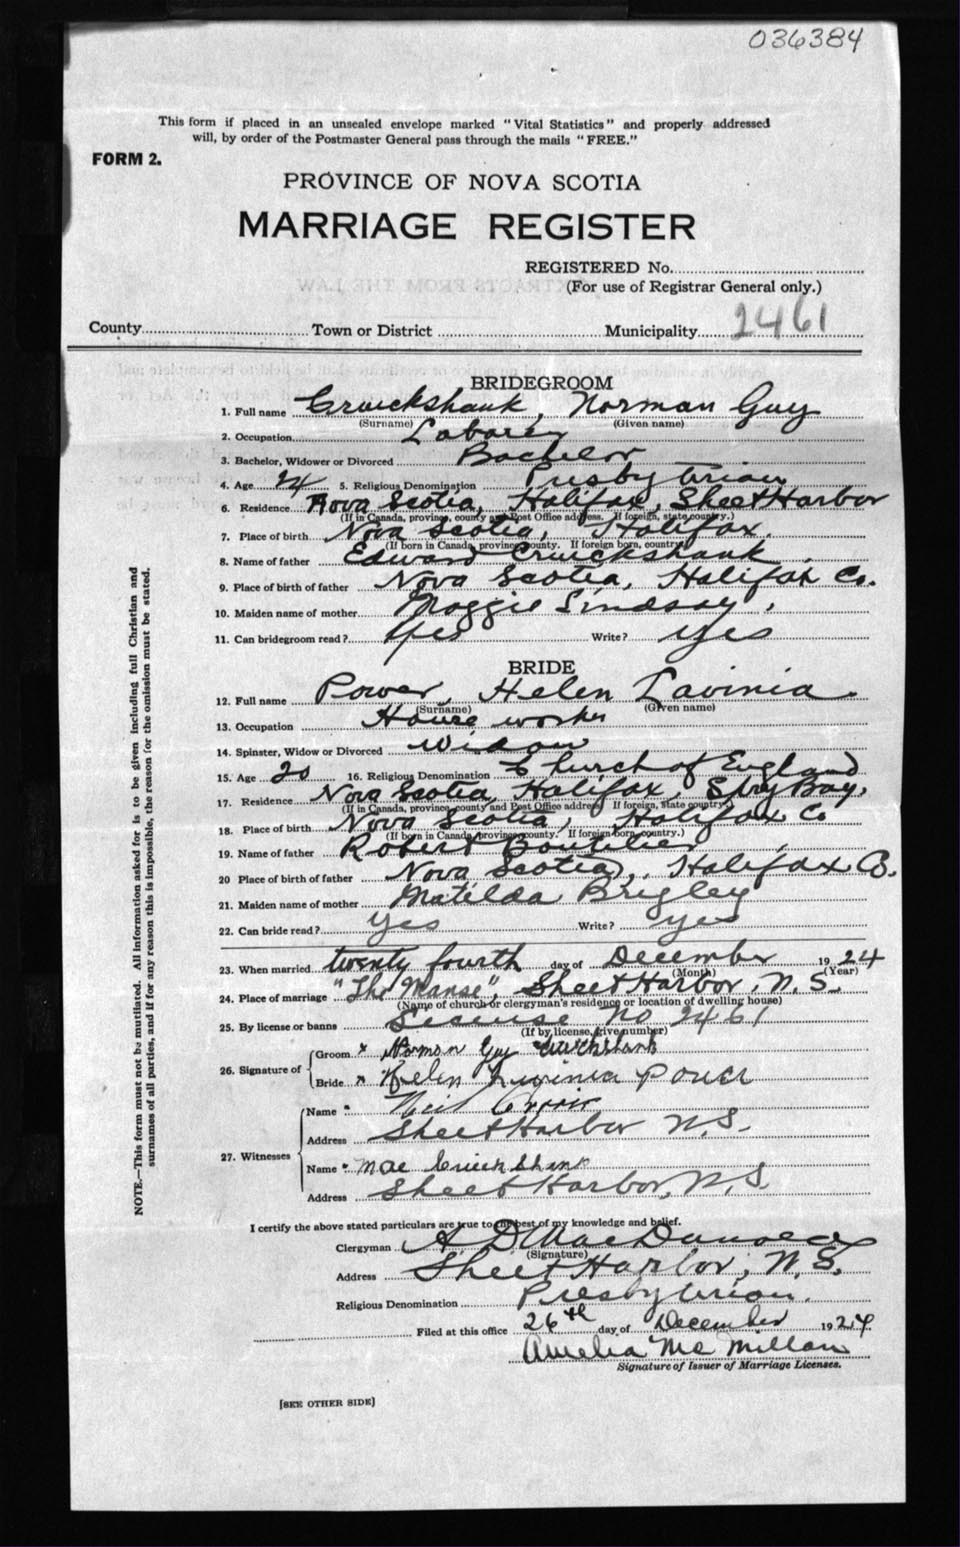 036384
This form if placed in an unsealed envelope marked "Vital Statistics" and properly addressed
will, by order of the Postmaster General pass through the mails "FREE."
FORM 2.
PROVINCE OF NOVA SCOTIA
MARRIAGE REGISTER
REGISTERED No.
(For use of Registrar General only.)
County Town or District Municipality 2461
BRIDEGROOM
1. Full name Cruickshank, Norman Guy
(Surname) (Given name)
2. Occupation Laborer
3. Bachelor, Widower or Divorced Bachelor
4. Age 24 5. Religious Denomination Presbyterian
6. Residence Nova Scotia, Halifax, Sheet Harbor
(If in Canada, province, county and Post Office address. If foreign, state country.)
7. Place of birth Nova Scotia, Halifax
(If born in Canada, province county. If foreign born, country)
8. Name of father Edward Cruickshank
9. Place of birth of father Nova Scotia, Halifax Co.
10. Maiden name of mother Maggie Lindsay,
11. Can bridegroom read? Yes Write? Yes
BRIDE
12. Full name Power, Helen Lavinia
(Surname) (Given name)
13. Occupation House worker
14. Spinster, Widow or Divorced Widow
15. Age 20 16. Religious Denomination Church of England
17. Residence Nova Scotia, Halifax, Spry Bay,
(If in Canada, province, county and Post Office address If foreign, state country)
18. Place of birth Nova Scotia, Halifax Co
(If born in Canada, province county. If foreign born, country.)
19. Name of father Robert Boutilier
20 Place of birth of father Nova Scotia, Halifax Co.
21. Maiden name of mother Matilda Brigley
22. Can bride read? Yes Write? Yes
23. When married twenty fourth day of December 1924
(Month) (Year)
24. Place of marriage "The Manse", Sheet Harbor, N.S.
(Name of church or clergyman's residence or location of dwelling house)
25. By license or banns License No 2461
(If by license, give number)
26. Signature of
Groom x Norman Guy Cruickshank
Bride x Helen Lavinia Power
27. Witnesses
Name
Address Sheet Harbor N.S.
Name Mae Cruickshank
Address Sheet Harbor, N.S.
I certify the above stated particulars are true to the best of my knowledge and belief.
Clergyman A D MacDonald
(Signature)
Address Sheet Harbor, N.S.
Religious Denomination Presbyterian.
Filed at this office 26th day of December 1924
Amelia Mc Millan
Signature of Issuer of Marriage Licenses.
[SEE OTHER SIDE]
NOTE.—This form must not be mutilated. All information asked for is to be given including full Christian and
surnames of all parties, and if for any reason this is impossible, the reason for the omission must be stated.